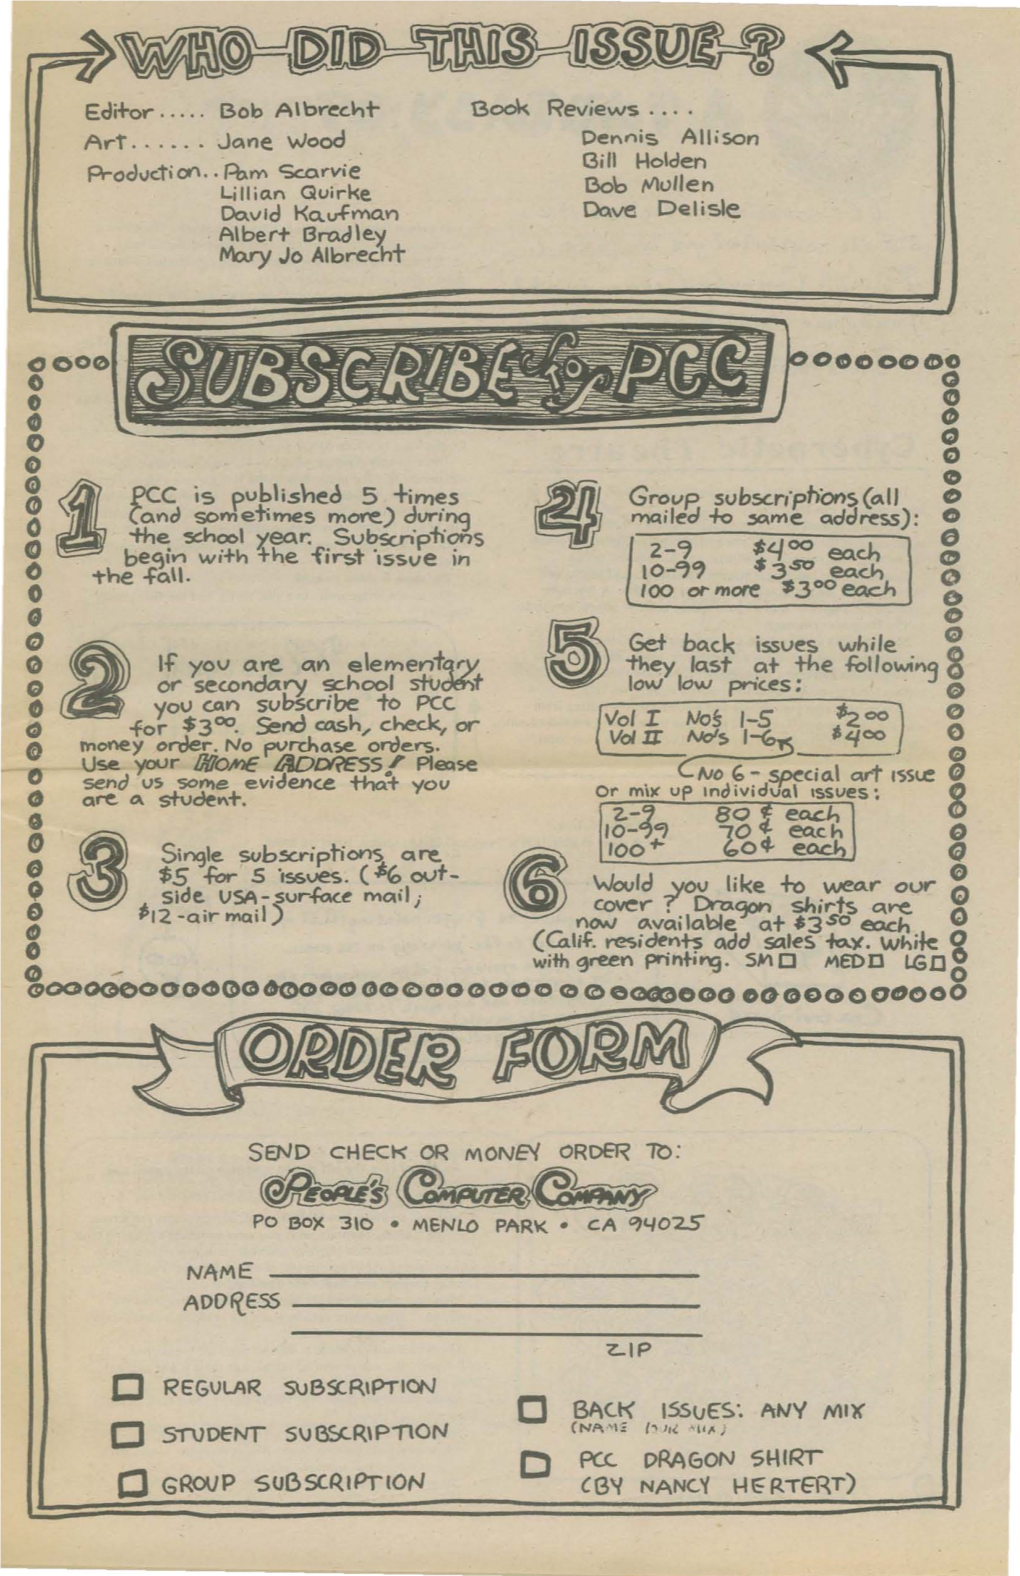 WHO DID THIS ISSUE ?
Editor ..... Bob Albrecht
Art...... Jane Wood
Production.. Pam Scarvie
Lillian Quirke
David Kaufman
Albert Bradley
Mary Jo Albrecht
Book Reviews ....
Dennis Allison
Bill Holden
Bob Mullen
Dave Delisle
SUBSCRIBE to PCC
1 PCC is published 5 times
(and sometimes more) during
the school year. Subscriptions
begin with the first issue in
the fall.
2 If you are an elementary
or secondary school student
you can subscribe to PCC
for $3.00. Send cash, check, or
money order. No purchase orders.
Use your HOME ADDRESS! Please
send us some evidence that you
are a student.
3 Single subscriptions are
$5 for 5 issues. ($6 out-
side USA - surface mail;
$12 - air mail)
4 Group subscriptions (all
mailed to same address):
2-9 $4 00 each
10-99 $3 50 each
100 or more $3 00 each
5 Get back issues while
they last at the following
low low prices:
Vol I No's 1-5 $2 00
Vol II No's 1-6 $4 00
No 6 - special art issue
Or mix up individual issues:
2-9 80 ¢ each
10-99 70 ¢ each
100+ 60¢ each
6 Would you like to wear our
cover ? Dragon shirts are
now available at $3 50 each
(Calif. residents add sales tax. White
with green printing. SM □ MED □ LG □
ORDER FORM
SEND CHECK OR MONEY ORDER TO:
PEOPLE'S COMPUTER COMPANY
PO BOX 310 • MENLO PARK • CA 94025
NAME
ADDRESS
ZIP
□ REGULAR SUBSCRIPTION
□ STUDENT SUBSCRIPTION
□ GROUP SUBSCRIPTION
□ BACK ISSUES: ANY MIX
(NAME MIX)
□ PCC DRAGON SHIRT
(BY NANCY HERTERT)